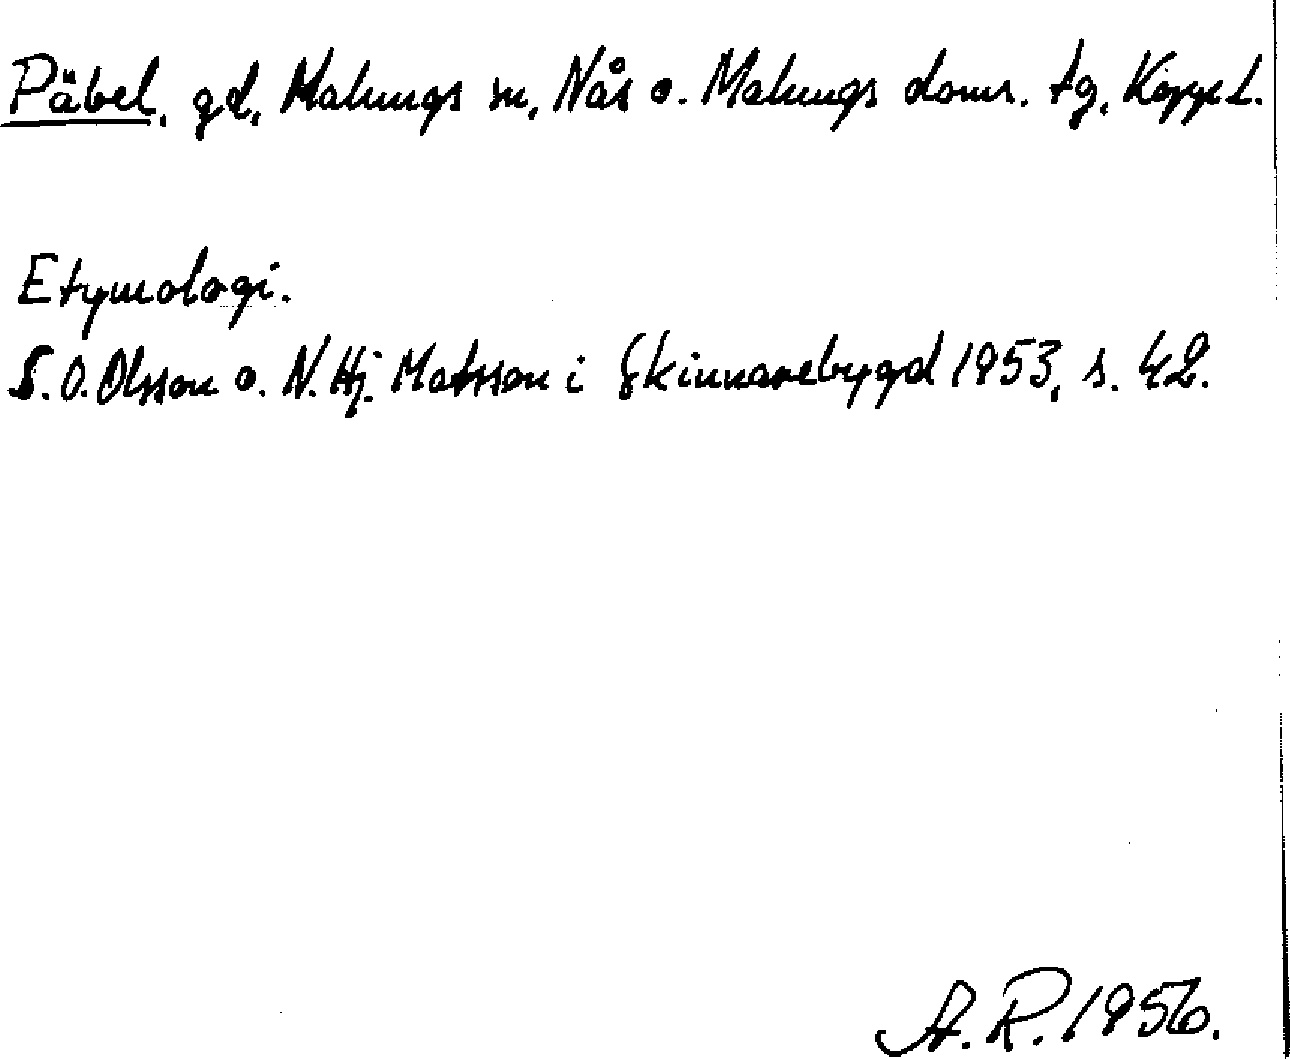 Päbel, gd, Malungs sn, Nås o. Malungs doms. tg, Kopp. l.
Etymologi.
S. O. Olsson o. N. Hj. Matsson i Skinnarebygd 1953, s. 42.
A. R. 1956.